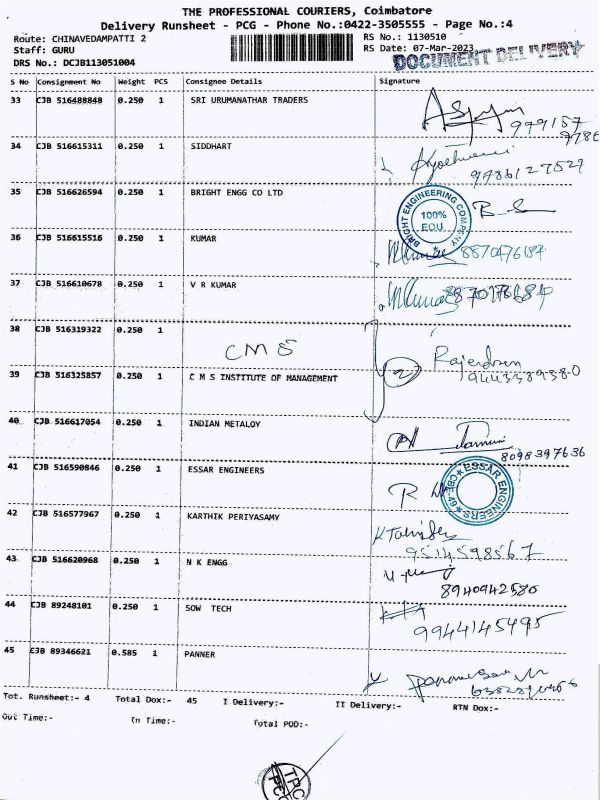 THE PROFESSIONAL COURIERS, Coimbatore
Delivery Runsheet - PCG - Phone No.:0422-3505555 - Page No.:4
Route: CHINAVEDAMPATTI 2 RS No.: 1130510
Staff: GURU RS Date: 07-Mar-2023
DRS No.: DCJB113051004 DOCUMENT DELIVERY
S No Consignment No Weight PCS Consignee Details Signature
33 CJB 516488848 0.250 1 SRI URUMANATHAR TRADERS
979157
9786
34 CJB 516615311 0.250 1 SIDDHART
9786127527
35 CJB 516626594 0.250 1 BRIGHT ENGG CO LTD
BRIGHT ENGINEERING COMPANY
100%
EOU
36 CJB 516615516 0.250 1 KUMAR
8870476187
37 CJB 516610678 0.250 1 V R KUMAR
38 CJB 516319322 0.250 1
CMS
Rajendran
39 CJB 516325857 0.250 1 C M S INSTITUTE OF MANAGEMENT
9443389380
40 CJB 516617054 0.250 1 INDIAN METALOY
8098397636
41 CJB 516590846 0.250 1 ESSAR ENGINEERS
ESSAR ENGINEERS
42 CJB 516577967 0.250 1 KARTHIK PERIYASAMY
9514598567
43 CJB 516620968 0.250 1 N K ENGG
8940942580
44 CJB 89248101 0.250 1 SOW TECH
9944145495
45 CJB 89346621 0.585 1 PANNER
Tot. Runsheet:- 4 Total Dox:- 45 I Delivery:- II Delivery:- RTN Dox:-
Out Time:- In Time:- Total POD:-
TPC